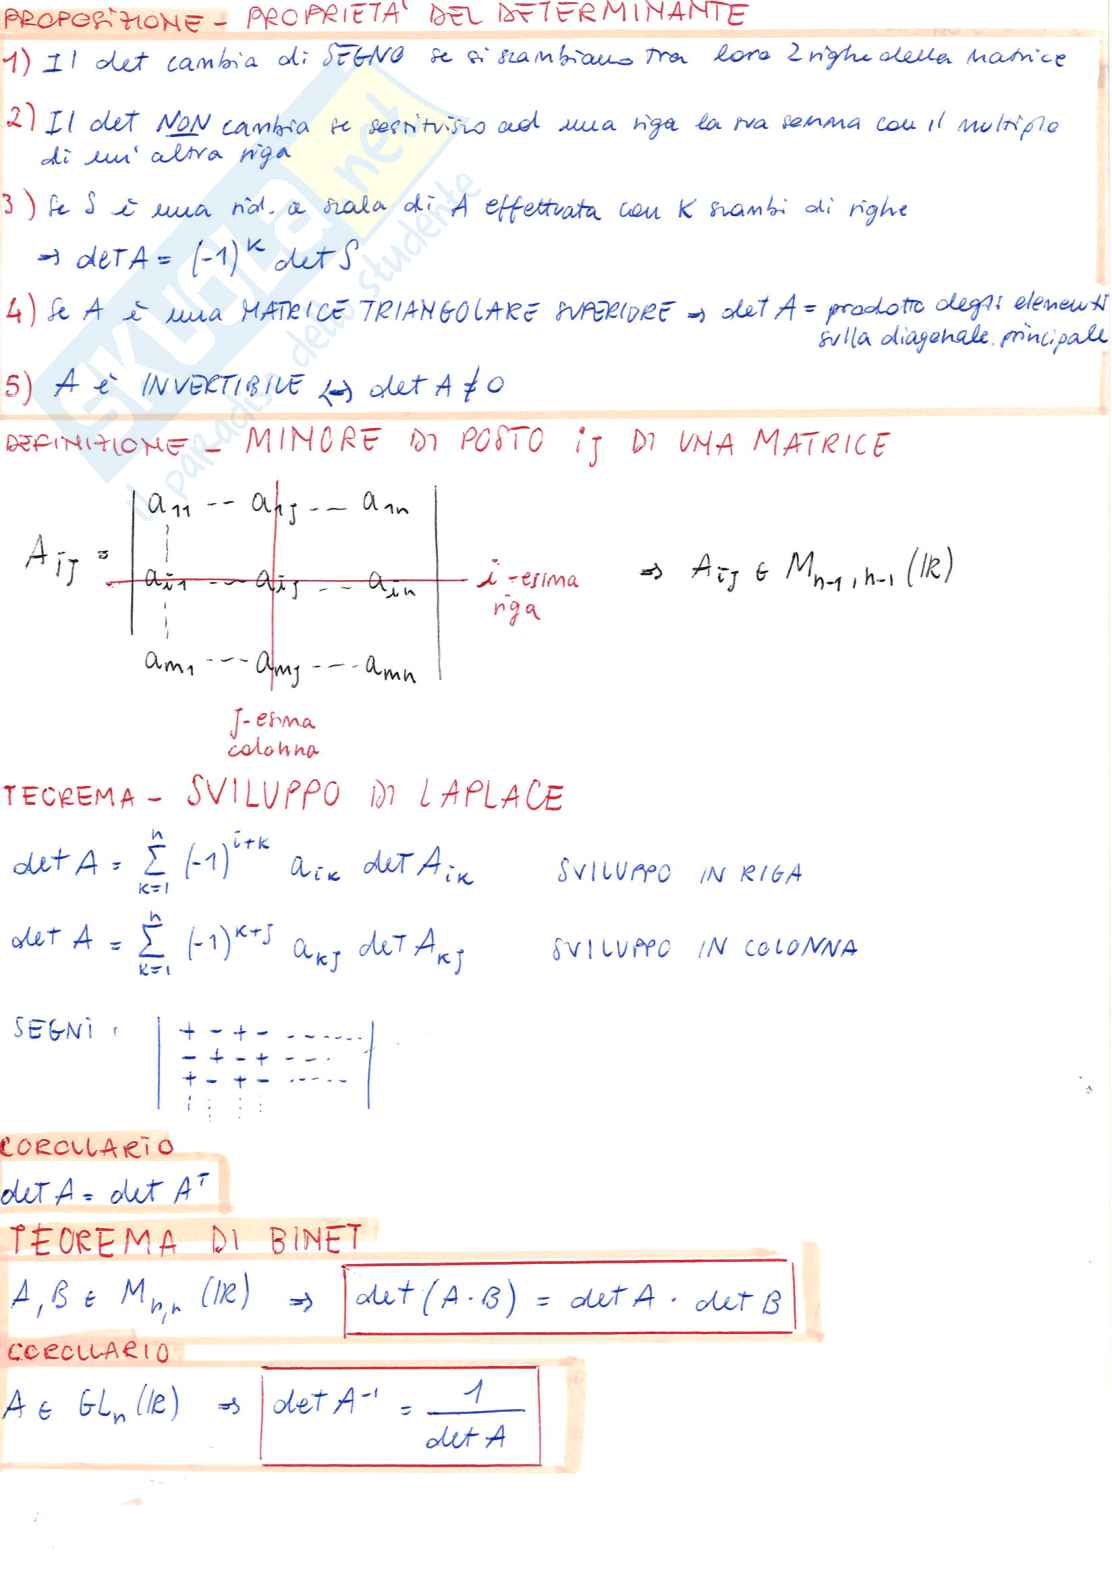 PROPOSIZIONE - PROPRIETA' DEL DETERMINANTE
1) Il det cambia di SEGNO se si scambiano tra loro 2 righe della matrice
2) Il det NON cambia se sostituisco ad una riga la sua somma con il multiplo
di un' altra riga
3) Se S è una rid. a scala di A effettuata con K scambi di righe
⇒ det A = (-1)^K det S
4) Se A è una MATRICE TRIANGOLARE SUPERIORE ⇒ det A = prodotto degli elementi
sulla diagonale principale
5) A è INVERTIBILE ⇔ det A ≠ 0
DEFINIZIONE - MINORE DI POSTO ij DI UNA MATRICE
a_11 -- a_1j -- a_1n
A_ij = a_i1 -- a_ij -- a_in i-esima riga ⇒ A_ij ∈ M_n-1,n-1 (IR)
a_m1 --- a_mj --- a_mn
j-esima
colonna
TEOREMA - SVILUPPO DI LAPLACE
det A = ∑_{K=1}^{n} (-1)^{i+K} a_iK det A_iK SVILUPPO IN RIGA
det A = ∑_{K=1}^{n} (-1)^{K+j} a_Kj det A_Kj SVILUPPO IN COLONNA
SEGNI: | + - + - ------ |
- + - + ---
+ - + - -----
COROLLARIO
det A = det A^T
TEOREMA DI BINET
A, B ∈ M_n,n (IR) ⇒ det (A · B) = det A · det B
COROLLARIO
A ∈ GL_n (IR) ⇒ det A^-1 = 1 / det A
SKUOLA.net
il paradiso dello studente